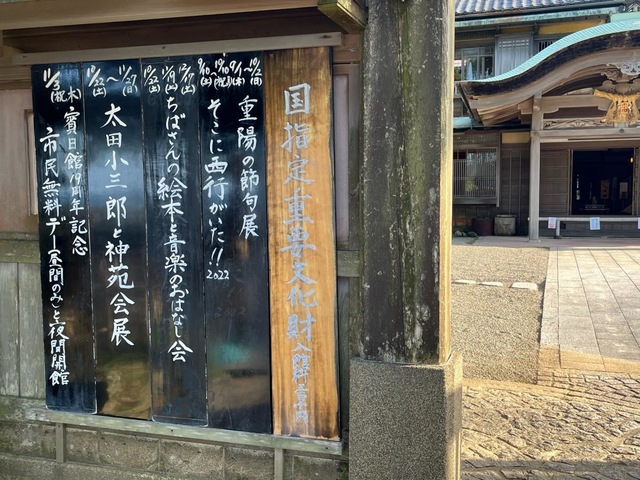 国指定重要文化財
9/1〜10/2(日)
重陽の節句展
9/10(土)〜10/10(祝)
そこに西行がいた!!2022
12/17(土)
11/19(土)
10/22(土)
ちばさんの絵本と音楽のおはなし会
10/22〜11/27(日)
太田小三郎と神苑会展
11/3(祝木)
賓日館19周年記念
市民無料デー(昼間のみ)と夜間開館